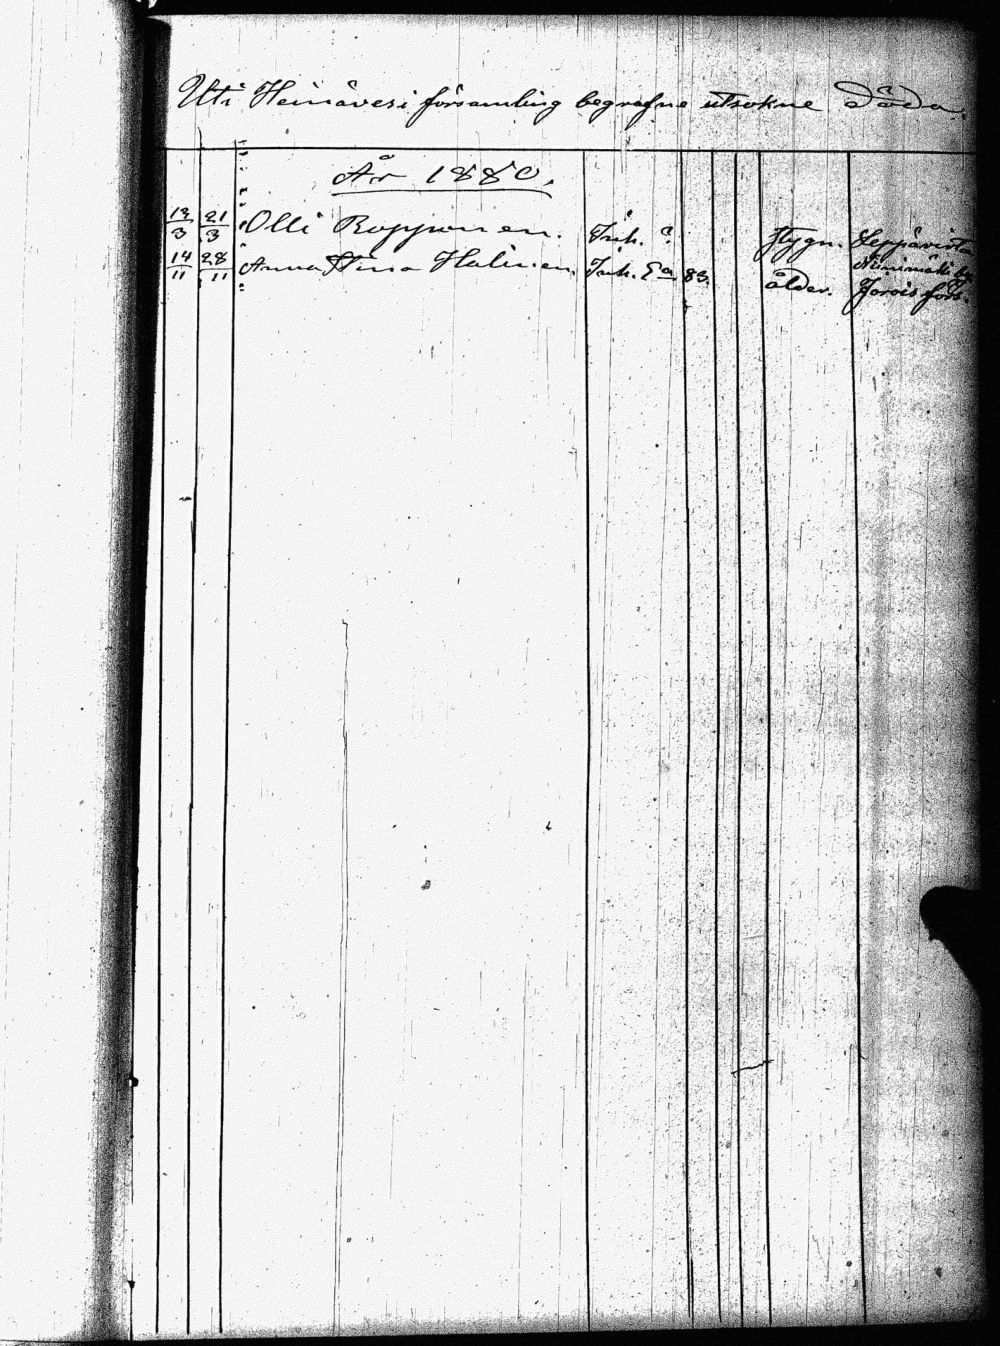 Uti Heinävesi församling begrafne utsokne Döda.
År 1880.
12/3 21/3 Olli Ropponen. Inh. ? flygn. Leppävirta
14/11 28/11 Anna Stina Halinen. Inh. Ea 83. ålder. Niinimäki by
Jorois förs.